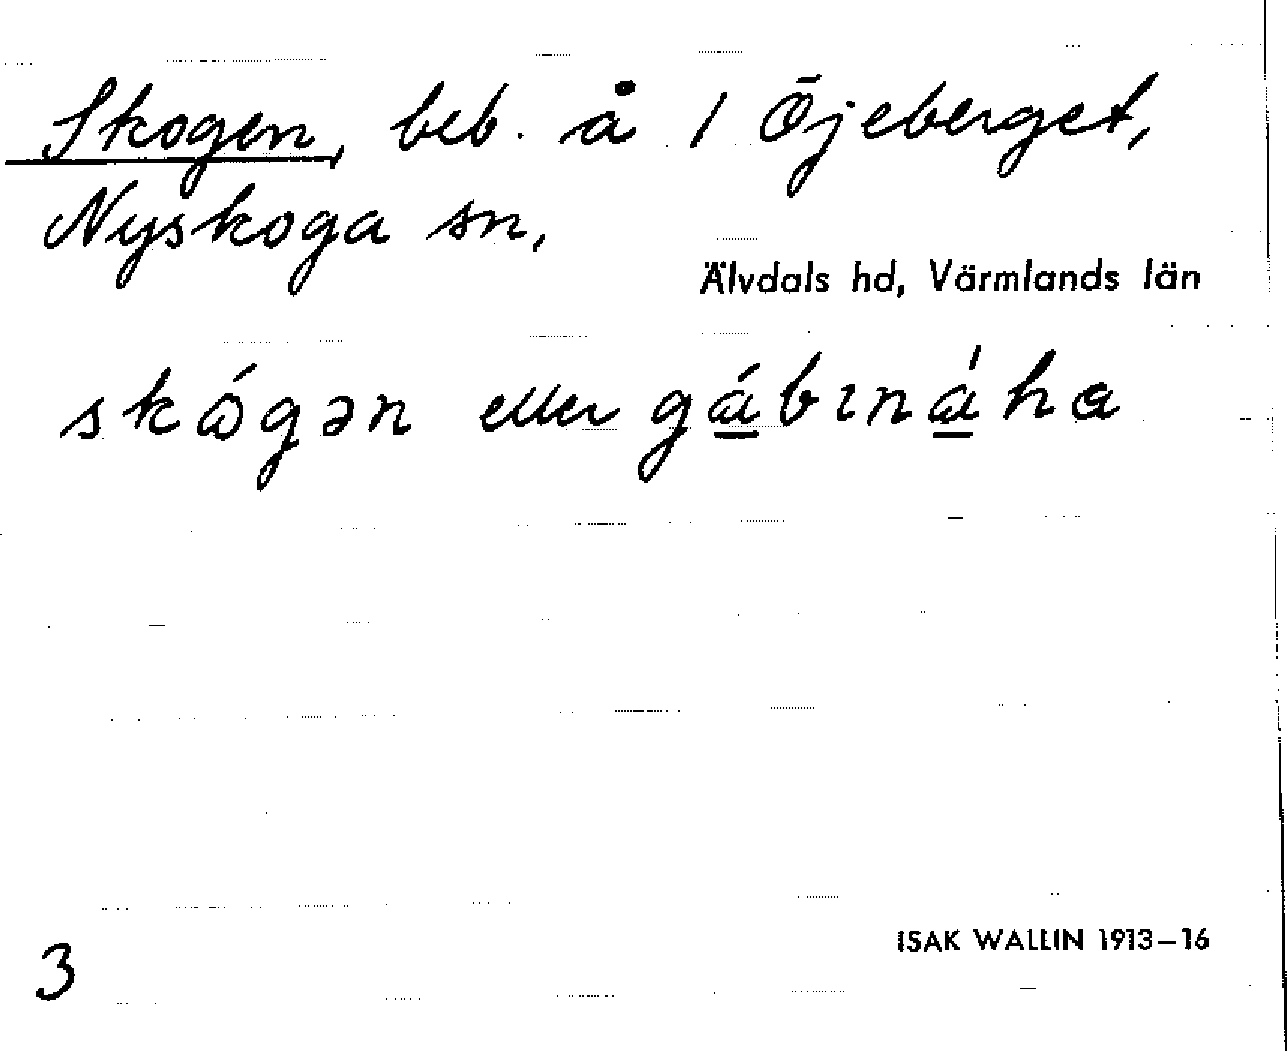 Skogen, beb. å 1 Öjeberget,
Nyskoga sn,
Älvdals hd, Värmlands län
skǫ́gən eller gá̲bɪná̲ha
3
ISAK WALLIN 1913–16